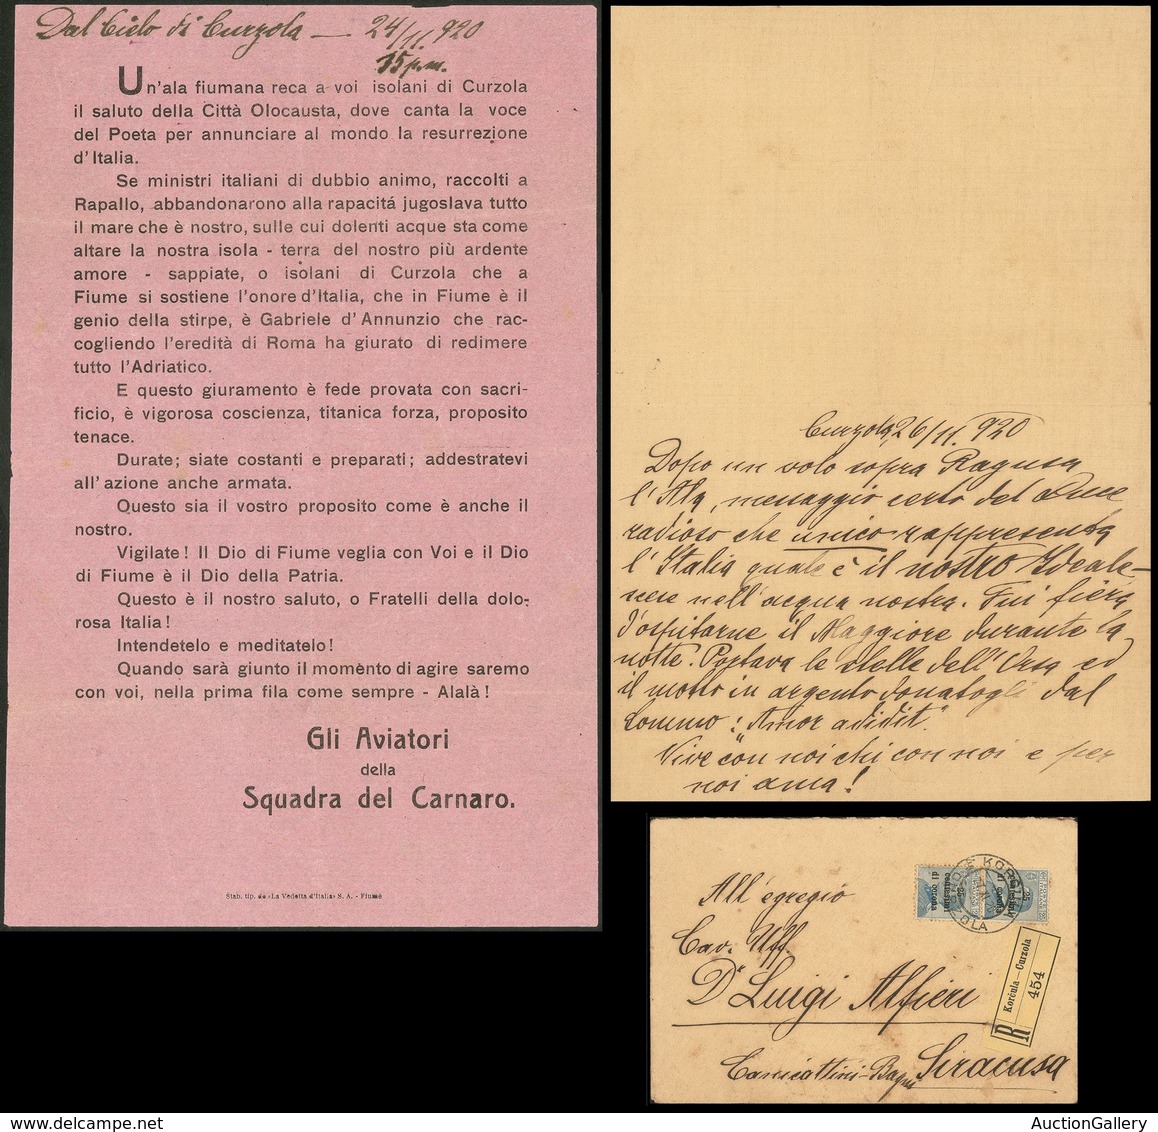 Dal Cielo di Curzola — 24/11. 920
15 p.m.
Un'ala fiumana reca a voi isolani di Curzola
il saluto della Città Olocausta, dove canta la voce
del Poeta per annunciare al mondo la resurrezione
d'Italia.
Se ministri italiani di dubbio animo, raccolti a
Rapallo, abbandonarono alla rapacitá jugoslava tutto
il mare che è nostro, sulle cui dolenti acque sta come
altare la nostra isola - terra del nostro più ardente
amore - sappiate, o isolani di Curzola che a
Fiume si sostiene l'onore d'Italia, che in Fiume è il
genio della stirpe, è Gabriele d'Annunzio che rac-
cogliendo l'eredità di Roma ha giurato di redimere
tutto l'Adriatico.
E questo giuramento è fede provata con sacri-
ficio, è vigorosa coscienza, titanica forza, proposito
tenace.
Durate; siate costanti e preparati; addestratevi
all'azione anche armata.
Questo sia il vostro proposito come è anche il
nostro.
Vigilate! Il Dio di Fiume veglia con Voi e il Dio
di Fiume è il Dio della Patria.
Questo è il nostro saluto, o Fratelli della dolo-
rosa Italia!
Intendetelo e meditatelo!
Quando sarà giunto il momento di agire saremo
con voi, nella prima fila come sempre - Alalà!
Gli Aviatori
della
Squadra del Carnaro.
Stab. tip. de «La Vedetta d'Italia» S. A. - Fiume
Curzola, 26/11. 920
Dopo un volo sopra Ragusa
l'Ala, messaggio certo del Duce
radioso che unico rappresenta
l'Italia quale è il nostro Ideale-
scese nell'acqua nostra. Fui fiera
d'ospitarne il Maggiore durante la
notte. Portava le stelle dell'Orsa ed
il motto in argento donatogli dal
Sommo: "Amor adidit".
Vive con noi chi con noi e per
noi ama!
All'egregio
Cav. Uff.
Dr Luigi Alfieri
Canicattini-Bagni Siracusa
25
centesimi
di corona
25
centesimi
di corona
KORČULA
R
Korčula — Curzola
454
AuctionGallery